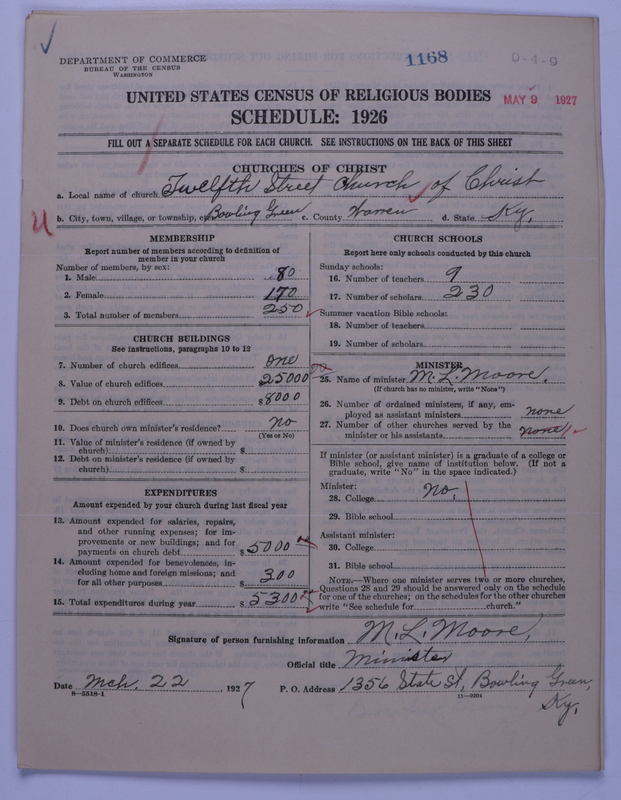 DEPARTMENT OF COMMERCE
BUREAU OF THE CENSUS
WASHINGTON
1168
0-4-9
UNITED STATES CENSUS OF RELIGIOUS BODIES
MAY 9 1927
SCHEDULE: 1926
FILL OUT A SEPARATE SCHEDULE FOR EACH CHURCH. SEE INSTRUCTIONS ON THE BACK OF THIS SHEET
CHURCHES OF CHRIST
a. Local name of church Twelfth Street Church of Christ
b. City, town, village, or township, etc. Bowling Green c. County Warren d. State Ky.
MEMBERSHIP
Report number of members according to definition of
member in your church
Number of members, by sex:
1. Male 80
2. Female 170
3. Total number of members 250
CHURCH BUILDINGS
See instructions, paragraphs 10 to 12
7. Number of church edifices One
8. Value of church edifices 25000
9. Debt on church edifices $ 8000
10. Does church own minister's residence? no
(Yes or No)
11. Value of minister's residence (if owned by
church) $
12. Debt on minister's residence (if owned by
church) $
EXPENDITURES
Amount expended by your church during last fiscal year
13. Amount expended for salaries, repairs,
and other running expenses; for im-
provements or new buildings; and for
payments on church debt $ 5000
14. Amount expended for benevolences, in-
cluding home and foreign missions; and
for all other purposes $ 300
15. Total expenditures during year $ 5300
CHURCH SCHOOLS
Report here only schools conducted by this church
Sunday schools:
16. Number of teachers 9
17. Number of scholars 230
Summer vacation Bible schools:
18. Number of teachers
19. Number of scholars
MINISTER
25. Name of minister M. L. Moore.
(If church has no minister, write "None")
26. Number of ordained ministers, if any, em-
ployed as assistant ministers none
27. Number of other churches served by the
minister or his assistants none
If minister (or assistant minister) is a graduate of a college or
Bible school, give name of institution below. (If not a
graduate, write "No" in the space indicated.)
Minister:
28. College no.
29. Bible school
Assistant minister:
30. College
31. Bible school
NOTE.—Where one minister serves two or more churches,
Questions 28 and 29 should be answered only on the schedule
for one of the churches; on the schedules for the other churches
write "See schedule for church."
Signature of person furnishing information M. L. Moore.
Official title Minister
Date Mch. 22 1927 P. O. Address 1356 State St, Bowling Green,
Ky.
8—5518-1
11—9204